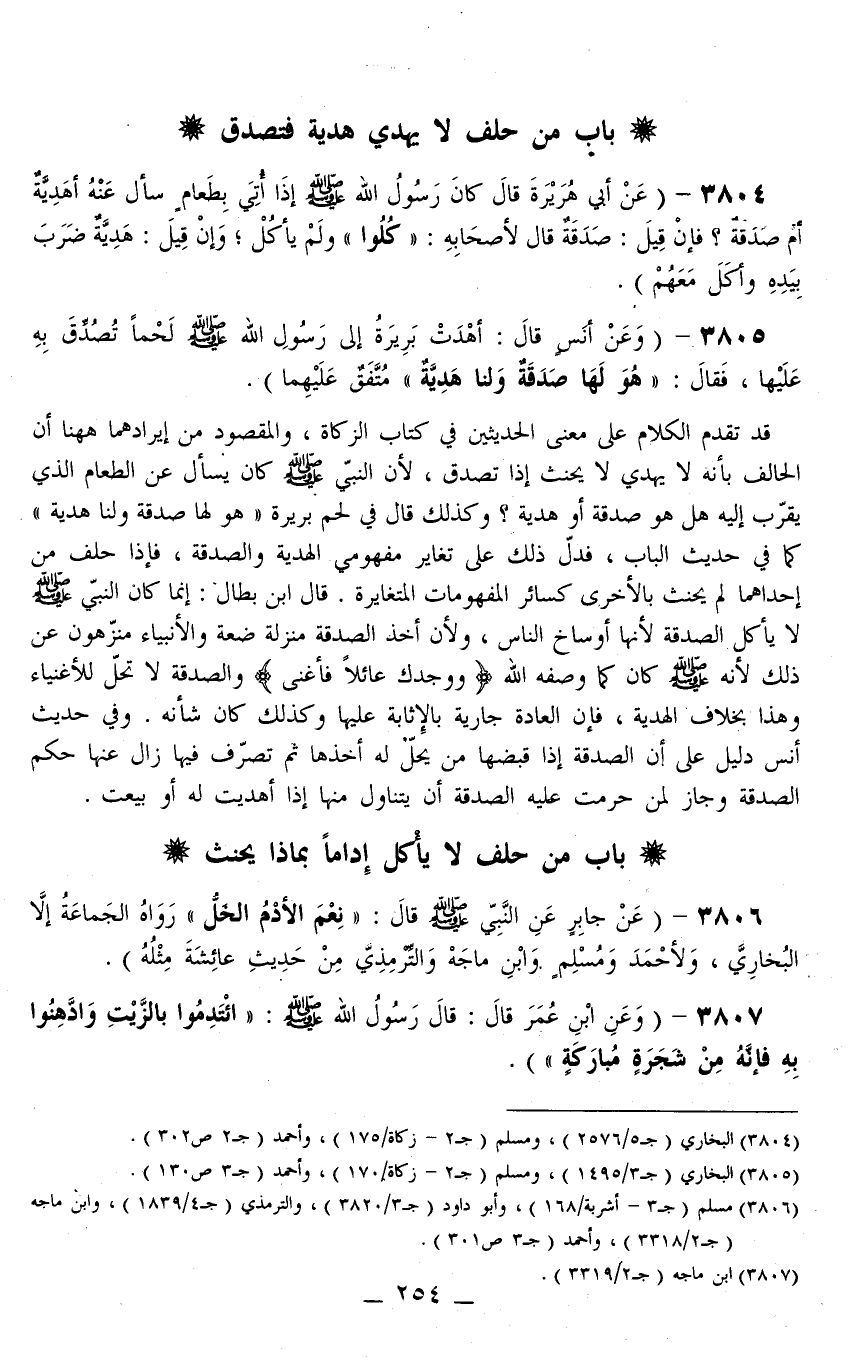 ❋ باب من حلف لا يهدي هدية فتصدق ❋
٣٨٠٤ - ( عَنْ أبي هُرَيْرَةَ قالَ كانَ رَسُولُ الله ﷺ إذَا أُتِي بِطَعامٍ سأل عَنْهُ أهَدِيَّةٌ
أمْ صَدَقَةٌ ؟ فإنْ قِيلَ : صَدَقَةٌ قال لأصحَابِهِ : « كُلُوا » ولَمْ يأكُلْ ؛ وَإنْ قِيلَ : هَدِيَّةٌ ضَرَبَ
بِيَدِهِ وأكَلَ مَعَهُمْ ) .
٣٨٠٥ - ( وَعَنْ أنَسٍ قالَ : أهْدَتْ بَرِيرَةُ إلى رَسُولِ الله ﷺ لَحْماً تُصُدِّقَ بِهِ
عَلَيْها ، فَقالَ : « هُوَ لَهَا صَدَقَةٌ وَلنا هَدِيَّةٌ » مُتَّفَقٌ عَلَيْهِما ) .
قد تقدم الكلام على معنى الحديثين في كتاب الزكاة ، والمقصود من إيرادهما ههنا أن
الحالف بأنه لا يهدي لا يحنث إذا تصدق ، لأن النبيّ ﷺ كان يسأل عن الطعام الذي
يقرّب إليه هل هو صدقة أو هدية ؟ وكذلك قال في لحم بريرة « هو لها صدقة ولنا هدية »
كما في حديث الباب ، فدلّ ذلك على تغاير مفهومي الهدية والصدقة ، فإذا حلف من
إحداهما لم يحنث بالأخرى كسائر المفهومات المتغايرة . قال ابن بطال : إنما كان النبيّ ﷺ
لا يأكل الصدقة لأنها أوساخ الناس ، ولأن أخذ الصدقة منزلة ضعة والأنبياء منزّهون عن
ذلك لأنه ﷺ كان كما وصفه الله ﴿ ووجدك عائلاً فأغنى ﴾ والصدقة لا تحلّ للأغنياء
وهذا بخلاف الهدية ، فإن العادة جارية بالإِثابة عليها وكذلك كان شأنه . وفي حديث
أنس دليل على أن الصدقة إذا قبضها من يحلّ له أخذها ثم تصرّف فيها زال عنها حكم
الصدقة وجاز لمن حرمت عليه الصدقة أن يتناول منها إذا أهديت له أو بيعت .
❋ باب من حلف لا يأْكل إِداماً بماذا يحنث ❋
٣٨٠٦ - ( عَنْ جابِرٍ عَنِ النَّبِّي ﷺ قالَ : « نِعْمَ الأدْمُ الخَلُّ » رَوَاهُ الجَماعَةُ إلَّا
البُخارِيَّ ، وَلأحْمَدَ وَمُسْلِمٍ وَابْنِ ماجَهْ وَالتِّرْمِذِيَّ مِنْ حَدِيثِ عائِشَةَ مِثْلُهُ ) .
٣٨٠٧ - ( وَعَنِ ابْنِ عُمَرَ قالَ : قالَ رَسُولُ الله ﷺ : « ائْتَدِمُوا بالزَّيْتِ وَادَّهِنُوا
بِهِ فإنَّهُ مِنْ شَجَرَةٍ مُبارَكَةٍ » ) .
(٣٨٠٤) البخاري ( جـ٢٥٧٦/٥ ) ، ومسلم ( جـ٢ - زكاة/١٧٥ ) ، وأحمد ( جـ٢ ص٣٠٢ ) .
(٣٨٠٥) البخاري ( جـ١٤٩٥/٣ ) ، ومسلم ( جـ٢ - زكاة/١٧٠ ) ، وأحمد ( جـ٣ ص١٣٠ ) .
(٣٨٠٦) مسلم ( جـ٣ - أشربة/١٦٨ ) ، وأبو داود ( جـ٣٨٢٠/٣ ) ، والترمذي ( جـ١٨٣٩/٤ ) ، وابن ماجه
( جـ٣٣١٨/٢ ) ، وأحمد ( جـ٣ ص٣٠١ ) .
(٣٨٠٧) ابن ماجه ( جـ٣٣١٩/٢ ) .
— ٢٥٤ —